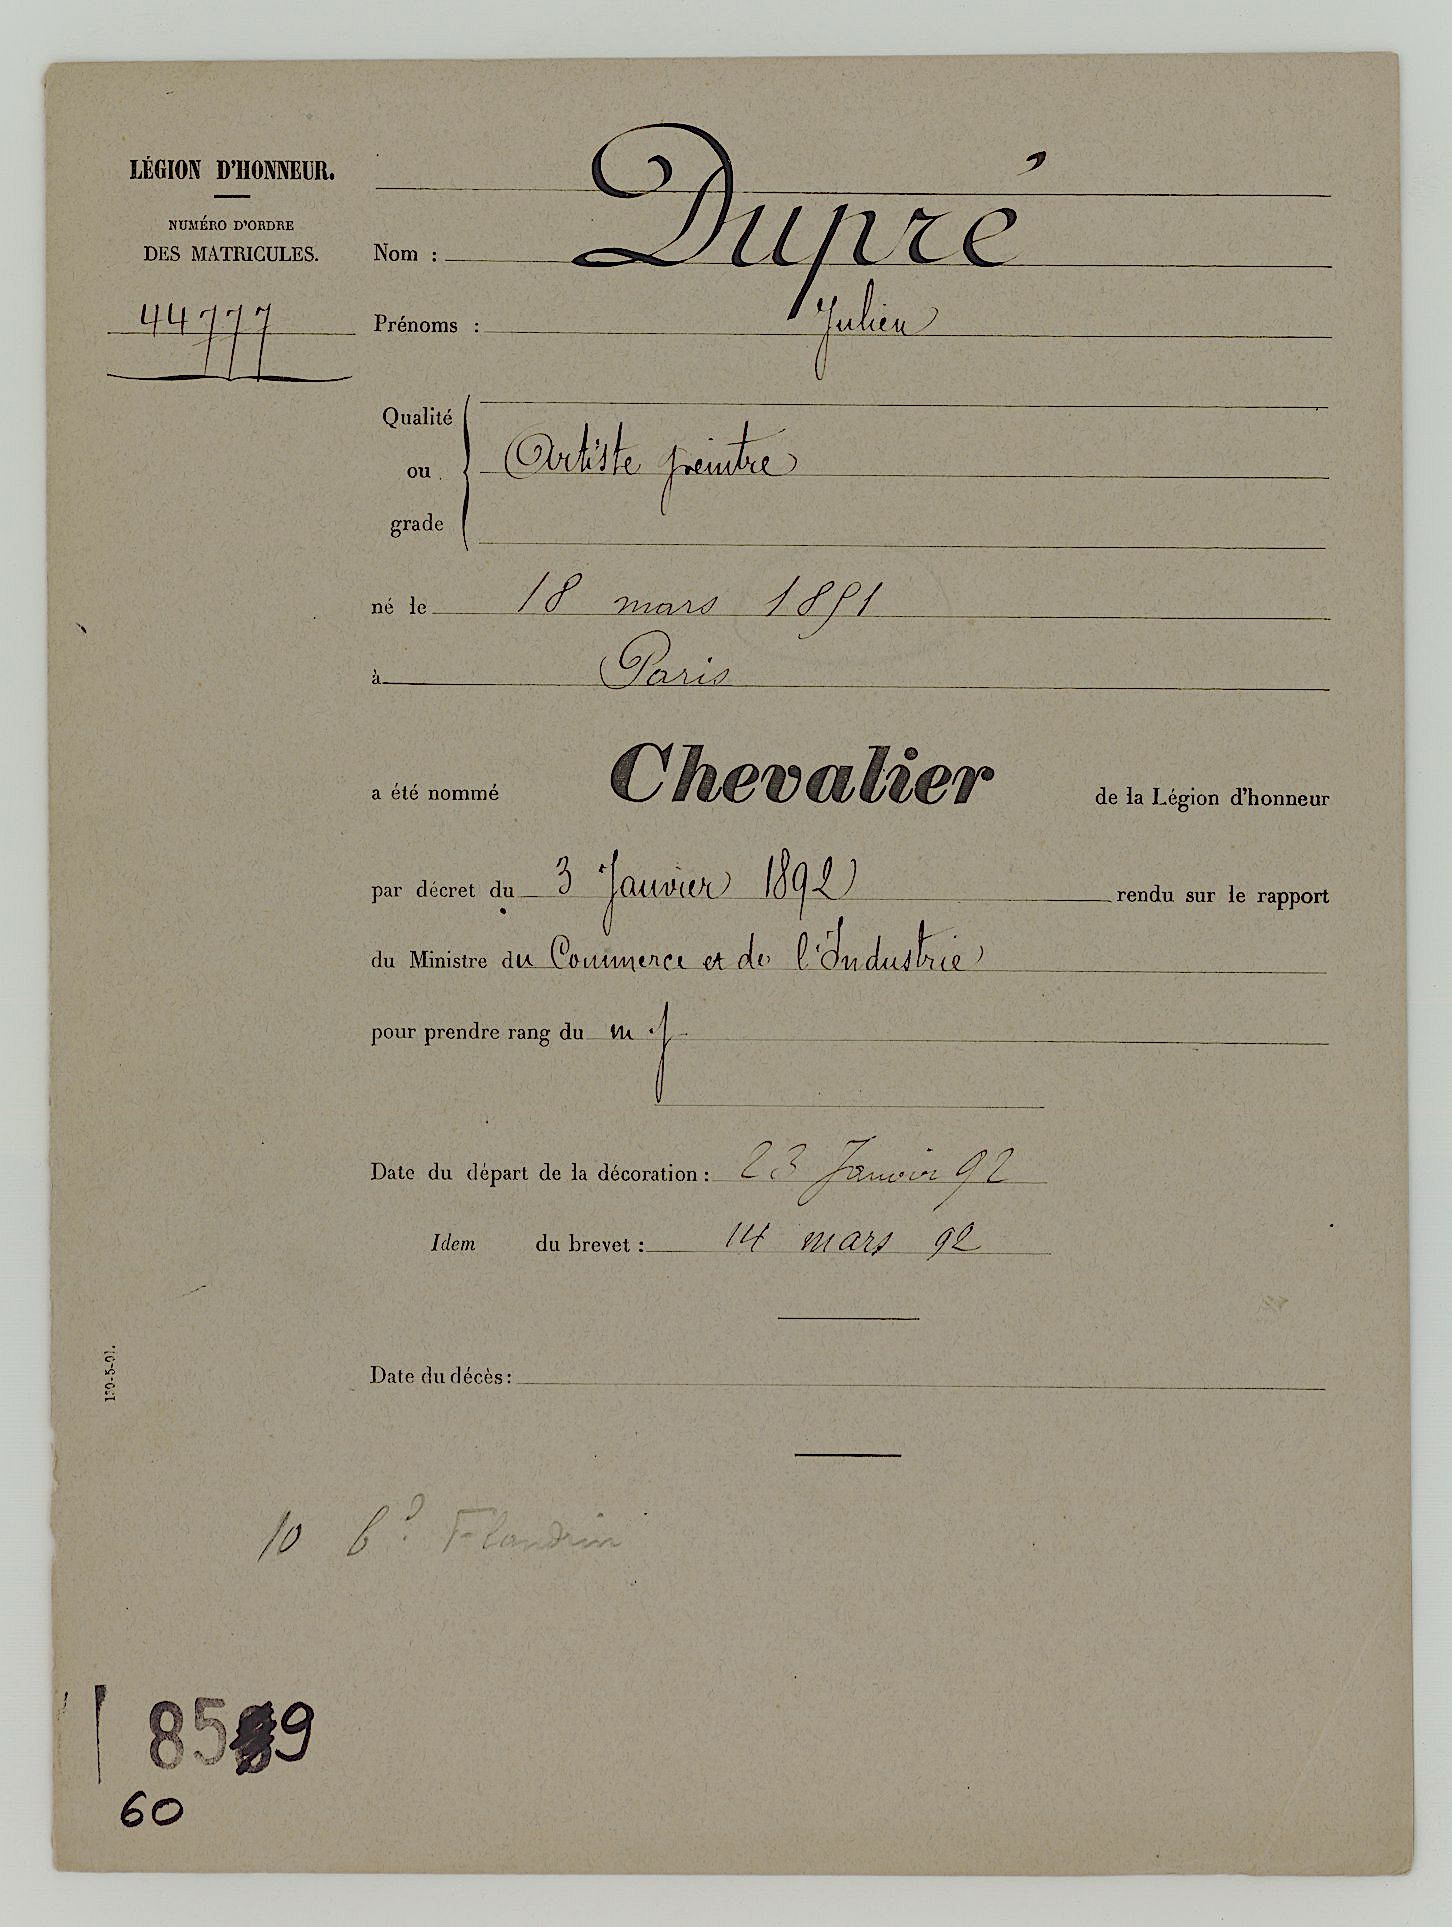 LÉGION D'HONNEUR.
NUMÉRO D'ORDRE
DES MATRICULES.
44777
Nom : Dupré
Prénoms : Julien
Qualité
ou
grade
Artiste peintre
né le 18 mars 1851
à Paris
a été nommé Chevalier de la Légion d'honneur
par décret du 3 Janvier 1892 rendu sur le rapport
du Ministre du Commerce et de l'Industrie
pour prendre rang du m j
Date du départ de la décoration : 23 Janvier 92
Idem du brevet : 14 mars 92
Date du décès :
10 Bd Flandrin
859
60